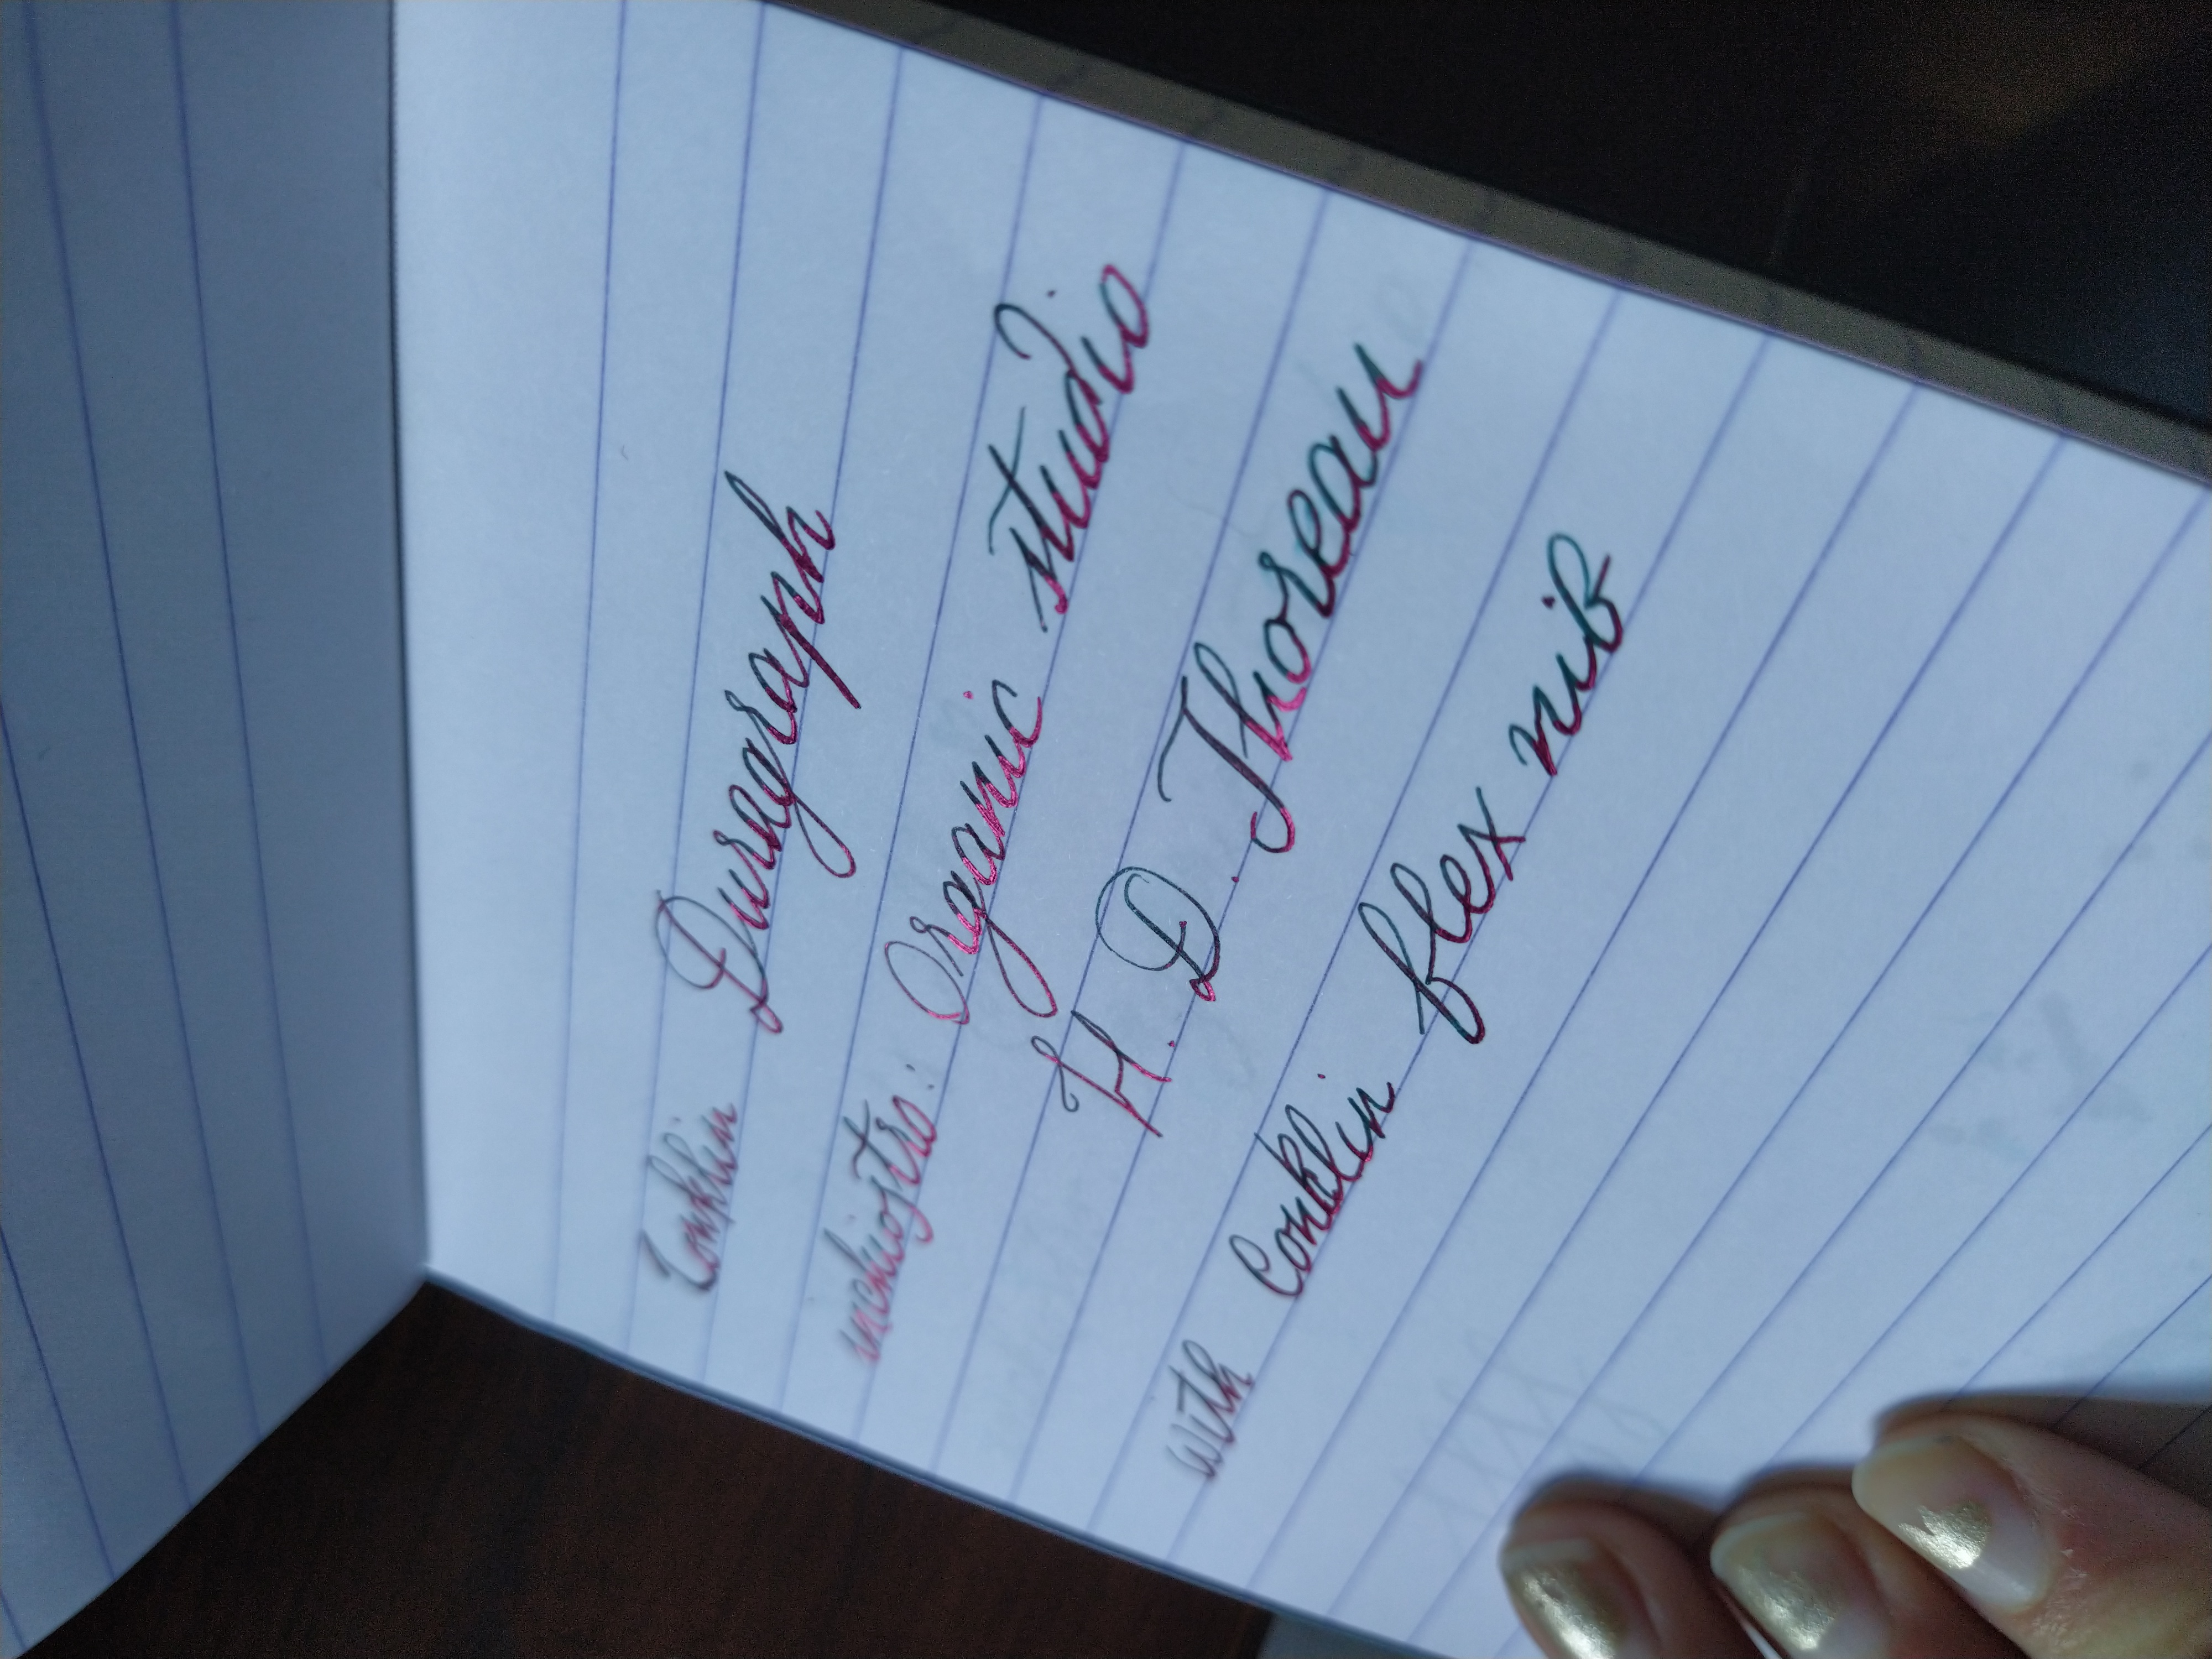 Conklin Duragraph
inchiostro: Organic studio
H. D. Thoreau
with Conklin flex nib